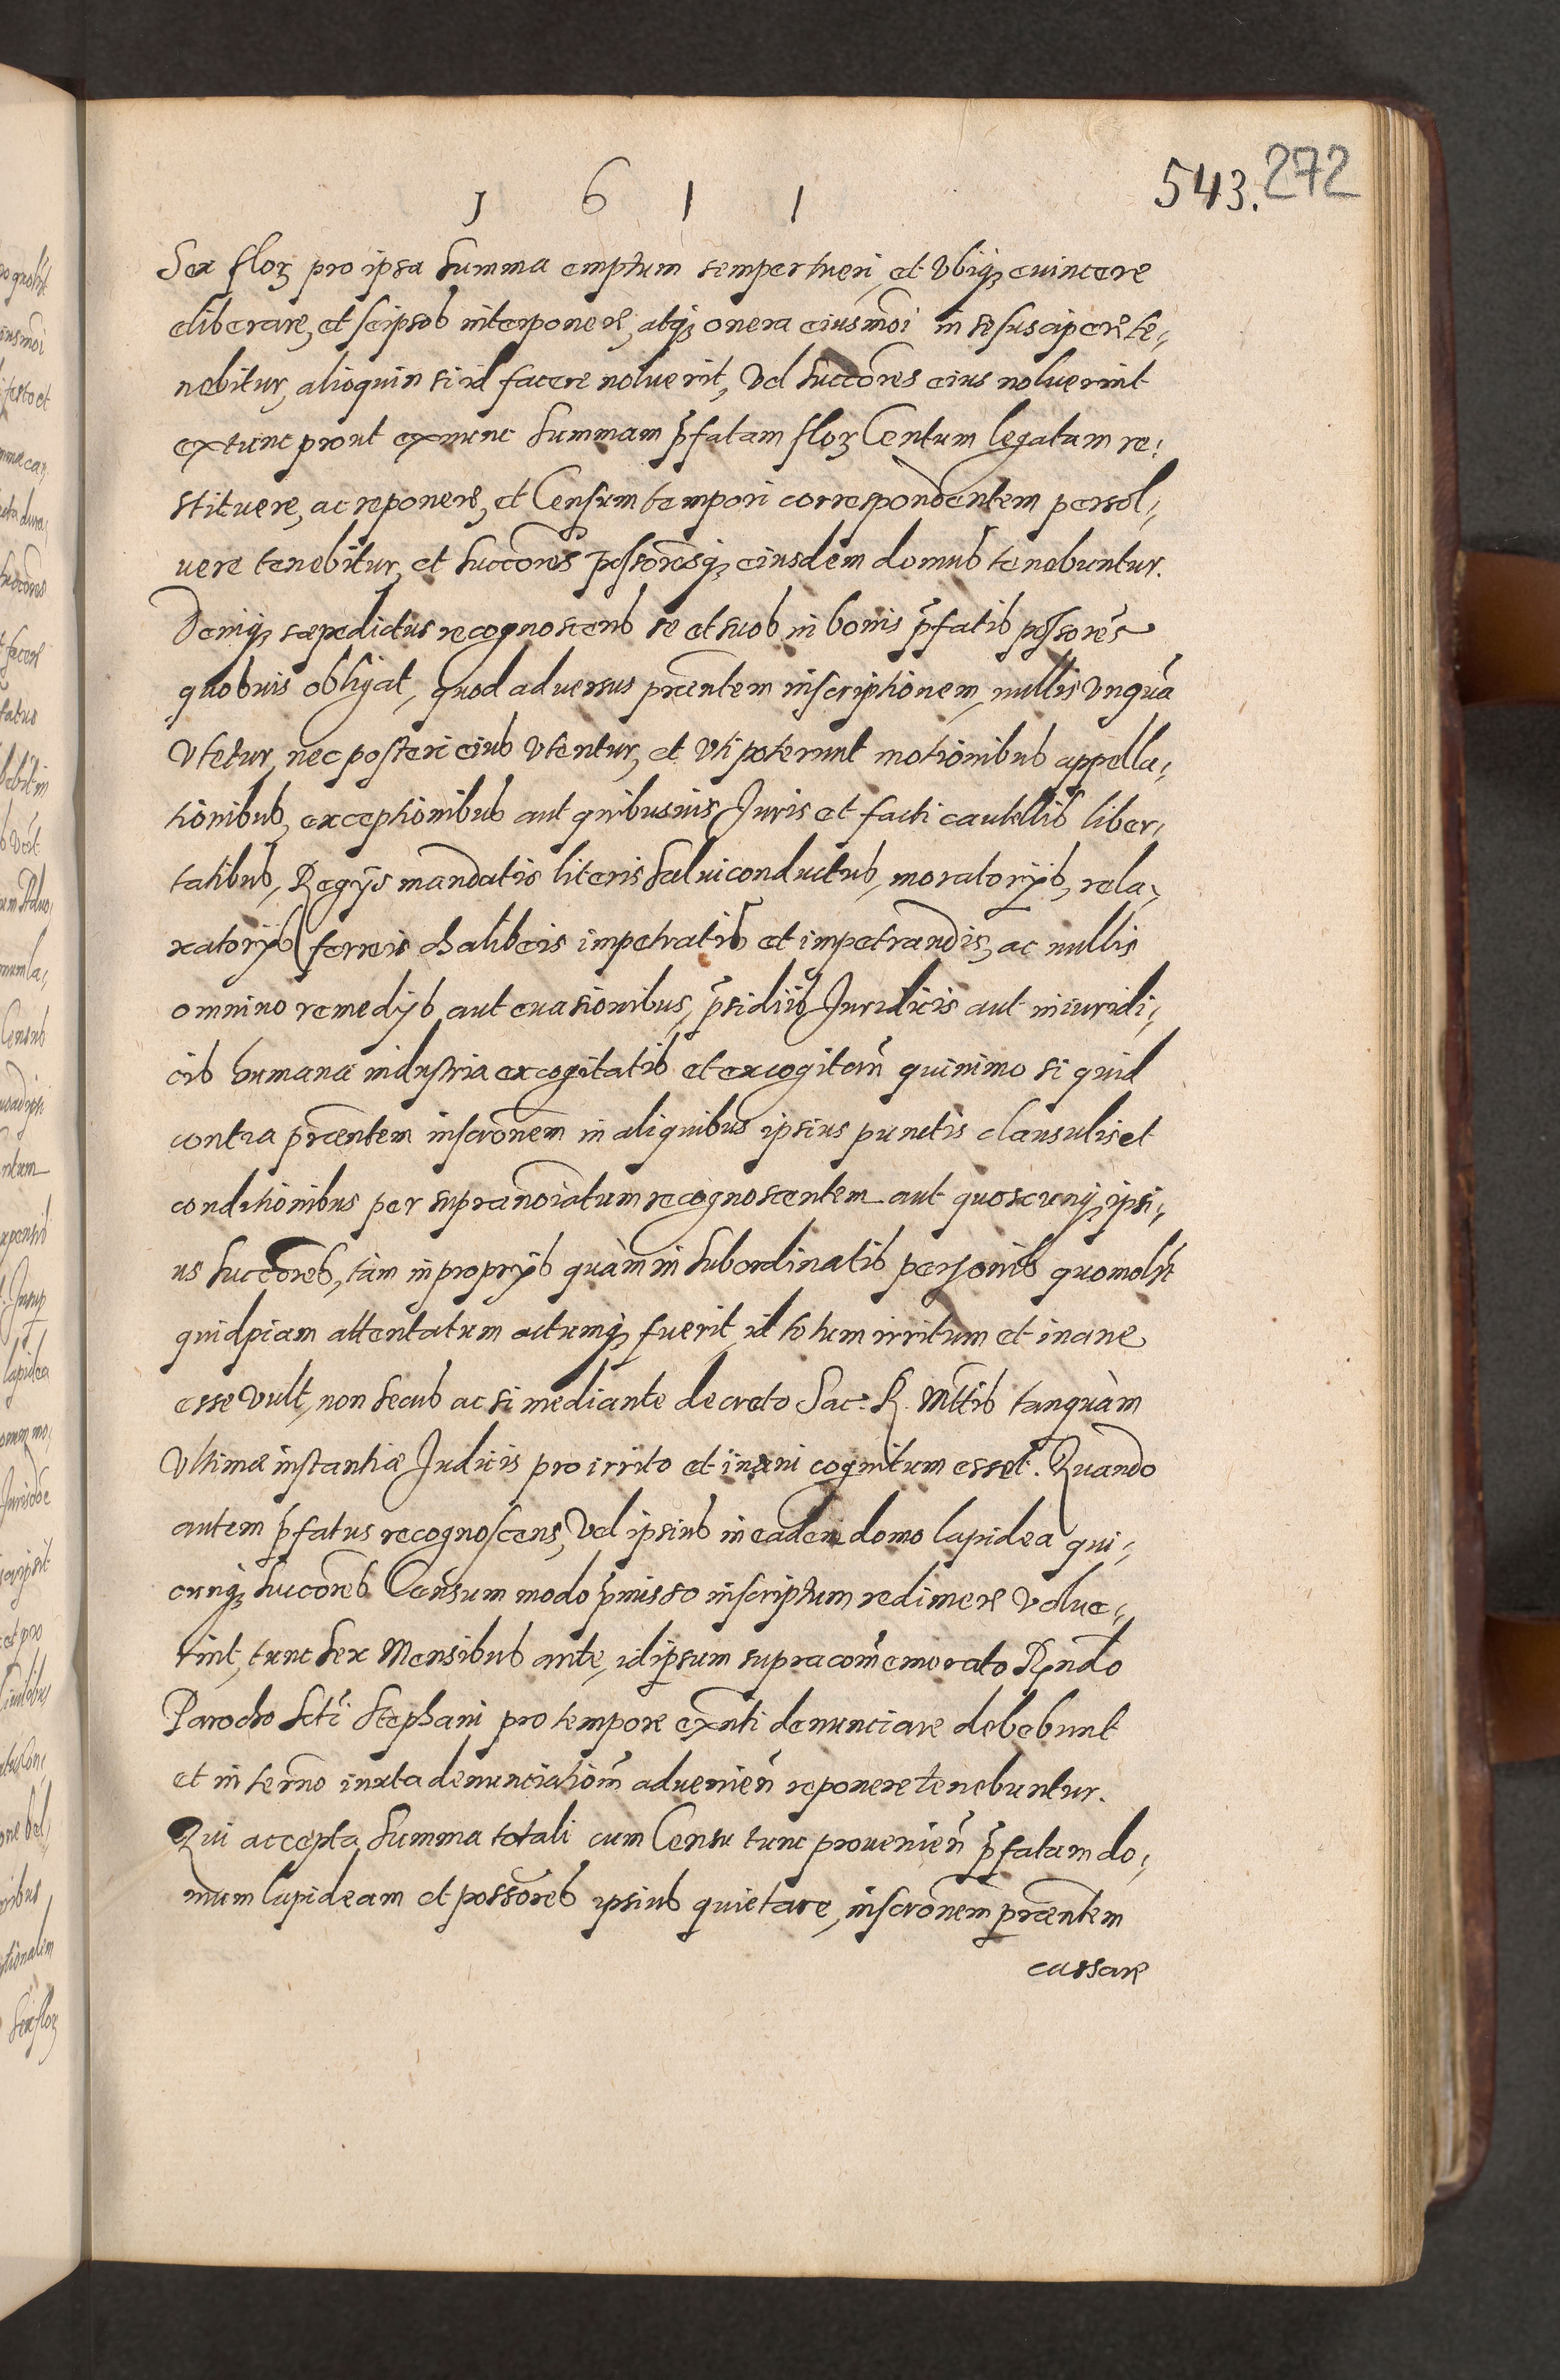 1 6 1 1
543. 272
Sex flor pro ipsa summa emptum semper tueri, et Vbiq euincere
eliberare, et seipsos interponere, atq onera eiusmoi in se suscipere te,
nebitur, alioquin si id facere noluerit, vel succores eius noluerint
extunc prout exnunc summam pfatam flor Centum legatam re,
stituere, ac reponere, et Censum tempori correspondentem persol,
uere tenebitur, et succores possoresq eiusdem domus tenebuntur.
Deniq saepedictus recognoscens se et suos in bonis pfatis possores
quosuis obligat, quod aduersus pntem inscriptionem, nullis Vnqua
Vtetur, nec posteri eius Vtentur, et Vti poterunt motionibus appella,
tionibus, exceptionibus aut quibusuis Juris et facti cautellis liber,
tatibus, Regÿs mandatis literis saluiconductus, moratorÿs, rela,
xatorÿs ferreis chalibeis impetratis et impetrandis, ac nullis
omnino remedÿs aut euasionibus, psidiis Juridicis aut iniuridi,
cis humana industria excogitatis et excogitan quinimo si quid
contra pntem inscronem in aliquibus ipsius punctis clausulis et
conditionibus per supranoiatum recognoscentem aut quoscunq ipsi,
us succores, tàm in proprÿs quàm in subordinatis personis quomolt
quidpiam attentatum actumq fuerit, id totum irritum et inane
esse Vult, non secus ac si mediante decreto Sac. R. Mttis tanquàm
Vltimae instantiae Judicis pro irrito et inani cognitum esset. Quando
autem pfatus recognoscens, Vel ipsius in eadem domo lapidea qui,
cunq succores Censum modo pmisso inscriptum redimere Volue,
rint, tunc sex Mensibus ante, idipsum supracomemorato Rndo
Parocho Scti Stephani pro tempore exnti denunciare debebunt
et in termo iuxta denunciatiom aduenien reponere tenebuntur.
Qui accepta summa totali cum Censu tunc prouenien pfatam do,
mum lapideam et possores ipsius quietare, inscronem pntem
cassare